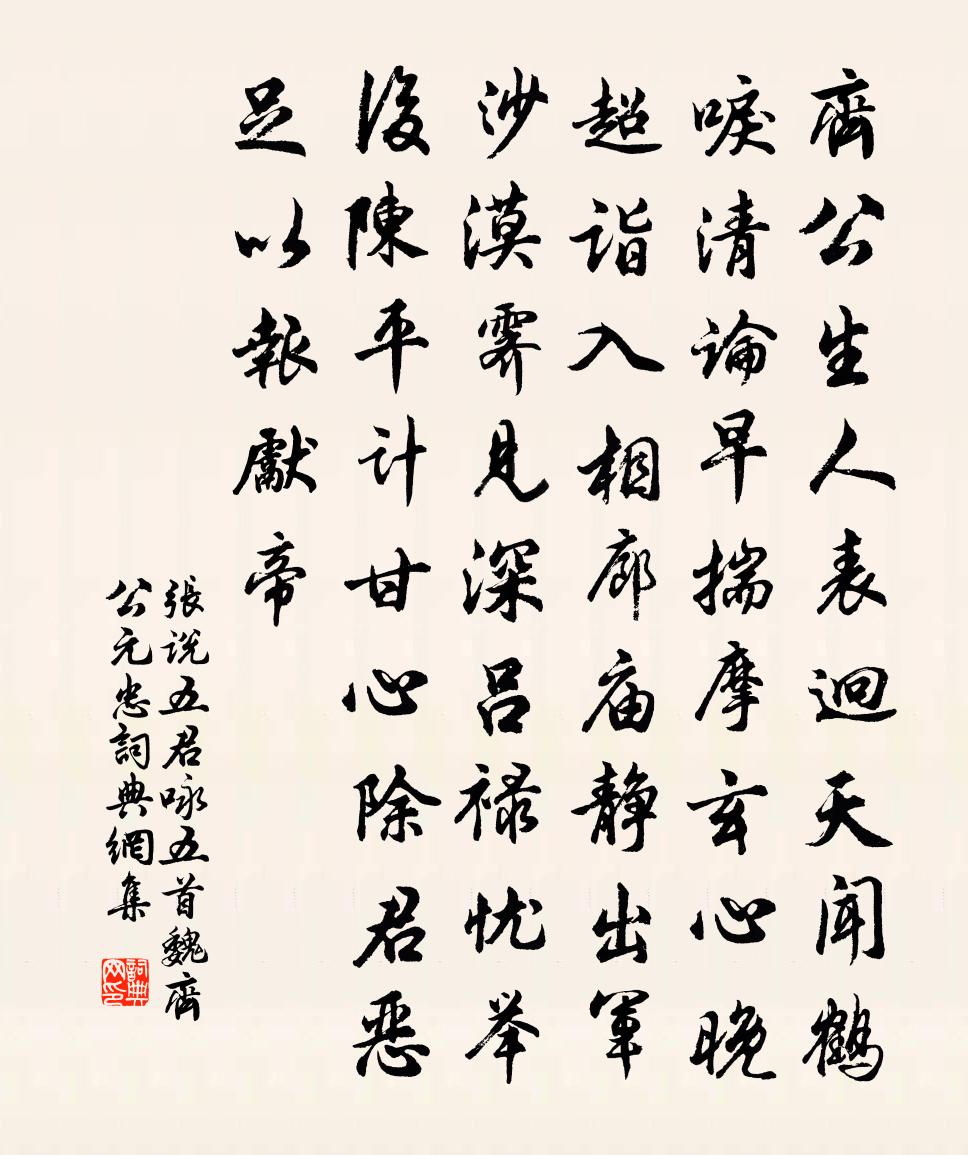 齊公生人表迥天聞鶴
唳清論早揣摩玄心晚
超詣入相廊庙静出軍
沙漠霽見深吕禄忧举
後陳平計甘心除君惡
足以報獻帝
張说五君咏五首魏齊
公元忠詞典網集
詞典网印